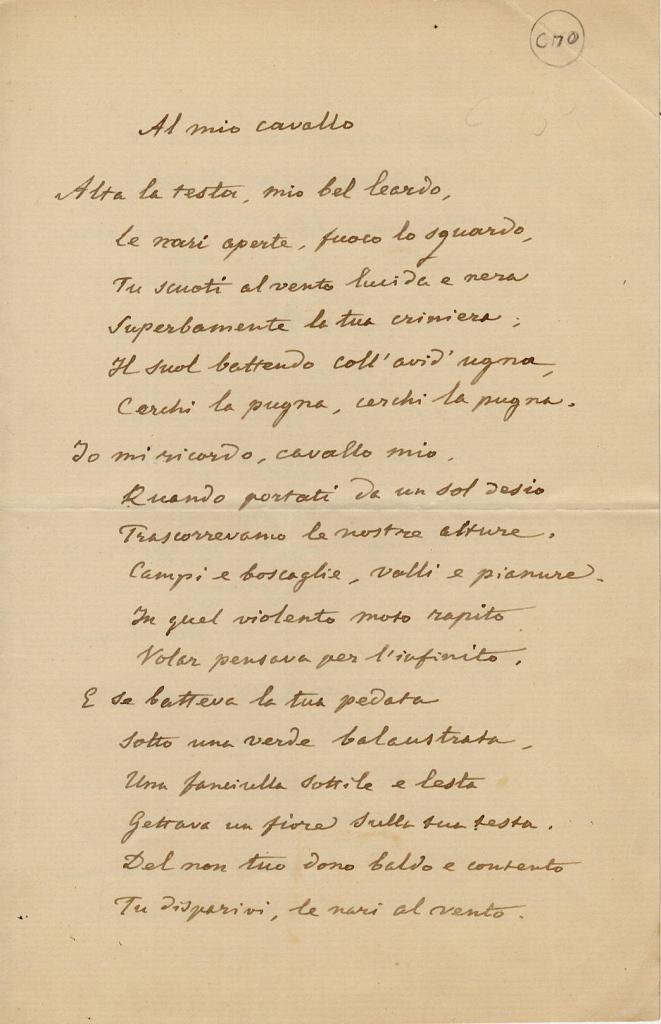 C70
Al mio cavallo
Alta la testa, mio bel leardo,
Le nari aperte, fuoco lo sguardo,
Tu scuoti al vento lucida e nera
Superbamente la tua criniera;
Il suol battendo coll'avid'ugna,
Cerchi la pugna, cerchi la pugna.
Io mi ricordo, cavallo mio,
Quando portati da un sol desio
Trascorrevamo le nostre alture,
Campi e boscaglie, valli e pianure.
In quel violento moto rapito
Volar pensava per l'infinito,
E se batteva la tua pedata
Sotto una verde balaustrata,
Una fanciulla sottile e lesta
Gettava un fiore sulla tua testa.
Del non tuo dono baldo e contento
Tu disparivi, le nari al vento.